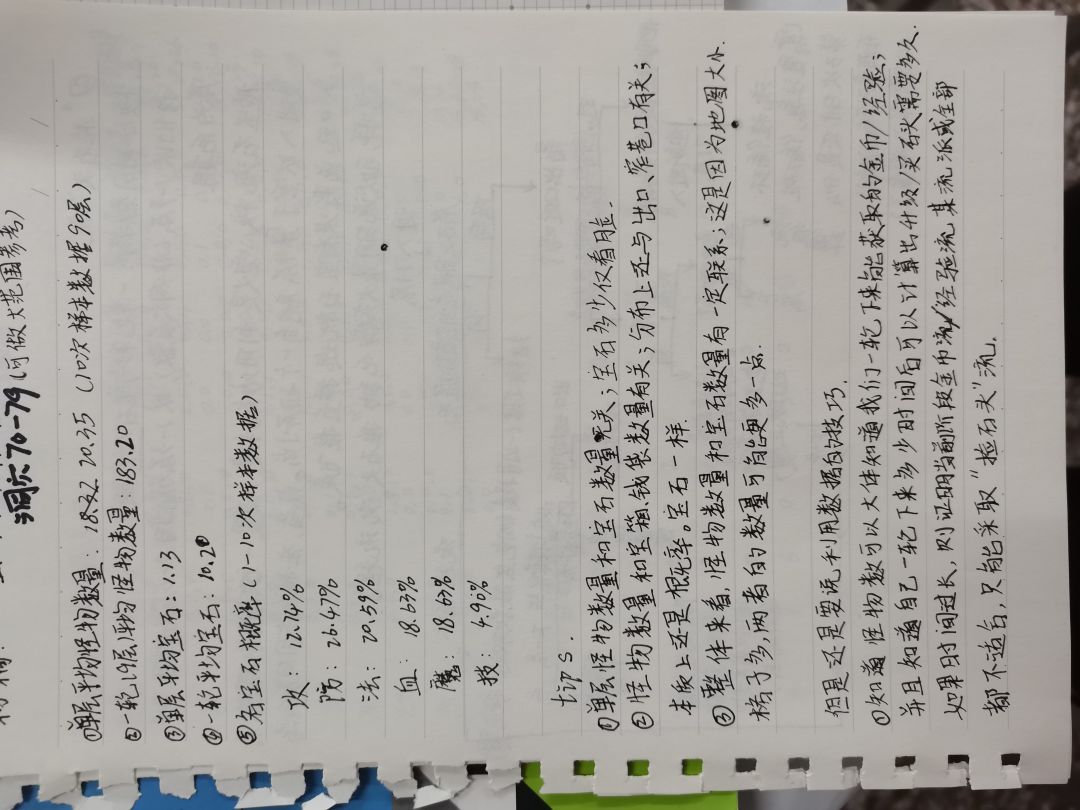 洞穴70-79(可做大范围参考)
①单层平均怪物数量：18.32 20.35 (10次样本数据90层)
②一轮(9层)均怪物数量：183.20
③单层平均宝石：1.13
④一轮平均宝石：10.20
⑤各宝石概率(1-10次样本数据)
攻：12.74%
防：26.47%
法：20.59%
血：18.63%
魔：18.63%
技：4.90%
tips.
①单层怪物数量和宝石数量无关；宝石多少仅看脸.
②怪物数量和宝箱、钱袋数量有关；分布上还与出口、窄巷口有关；
本质上还是概率。宝石一样.
③整体来看,怪物数量和宝石数量有一定联系；这是因为地图大小.
格子多,两者的数量可能更多一点.
但是还是要说利用数据的技巧.
①知道怪物数可以大体知道我们一轮下来能获取的金币/经验；
并且知道自己一轮下来多少时间后可以计算出升级/买石头需要多久.
如果时间过长,则证明当前阶段金币流/经验流,某流派或全部
都不适合,只能采取“捡石头”流.